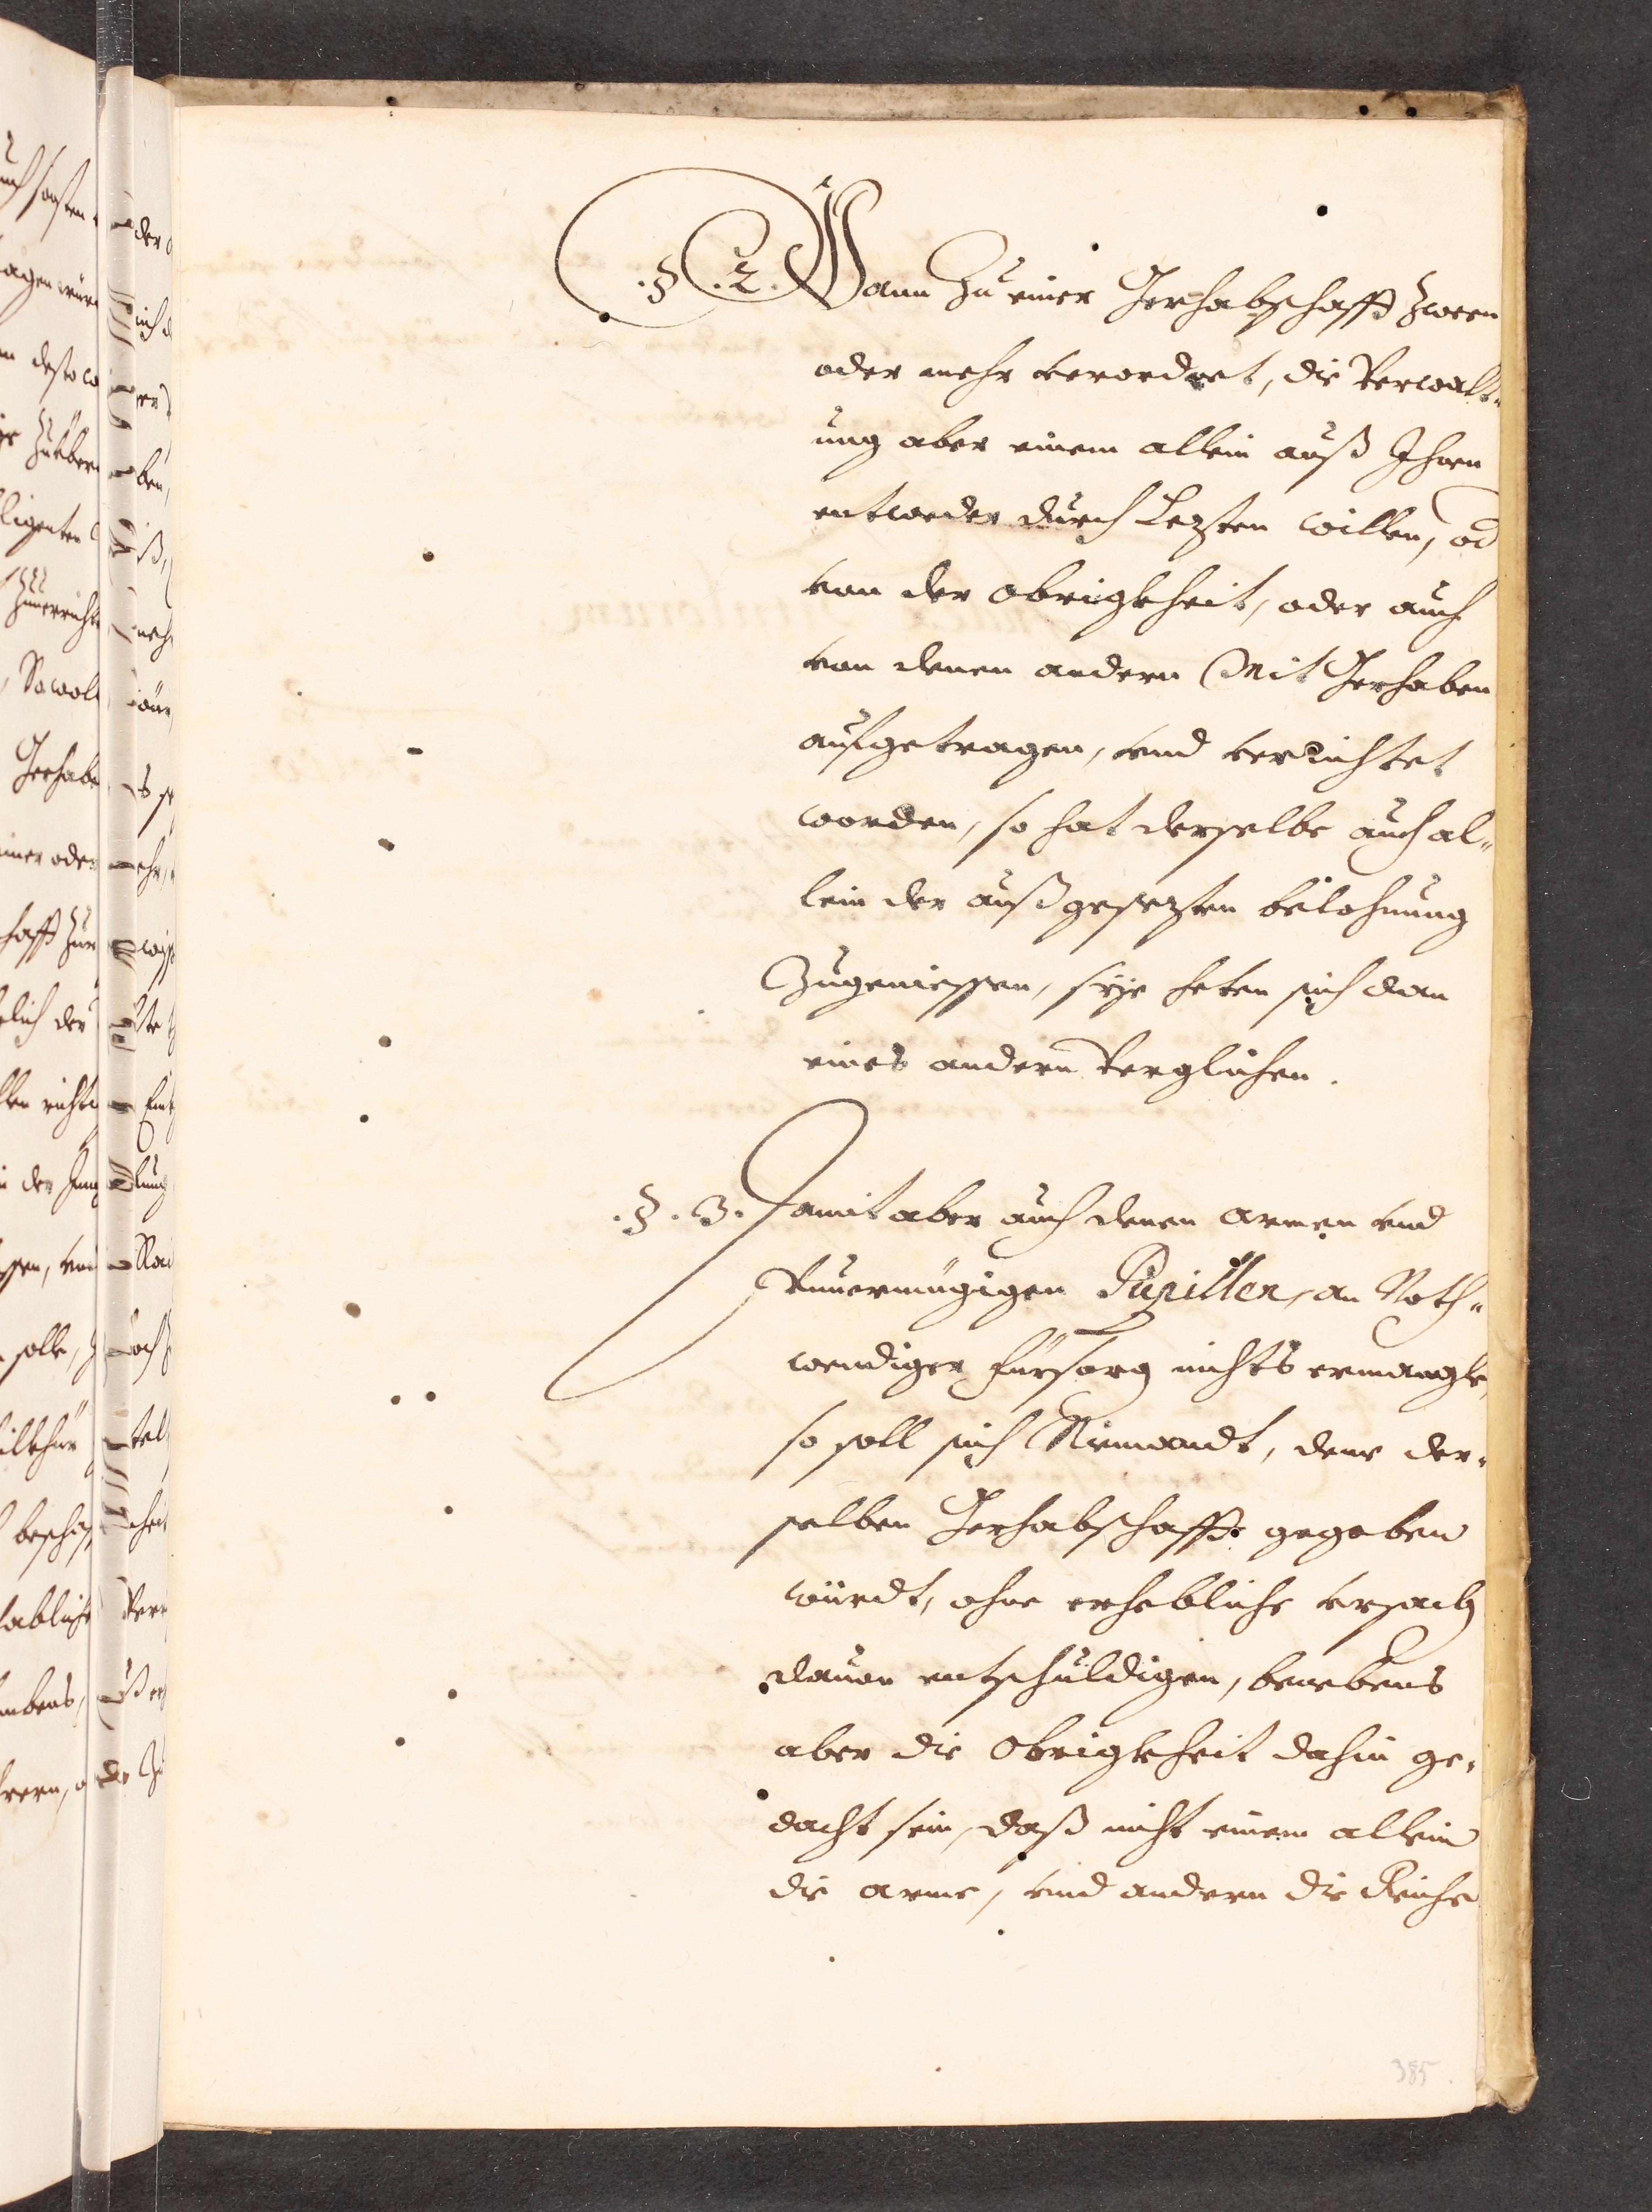 .§.2. Wann zu einer Gerhabschafft zween
oder mehr verordnet, die Verwalt„
ung aber einem allein auß Ihnen
entweder durch Lezten willen, od
von der Obrigkheit, oder auch
von denen andern Mit Gerhaben
aufgetragen, vnd verrichtet
worden, so hat derselbe auch al„
lein der außgesezten belohnung
Zugeniessen, seye heten sich dan
eines andern Verglichen.
.§.3. Damit aber auch denen armen vnd
Vnuermügigen Pupillen, an Noth„
wendiger fürsorg nichts ermangle,
so soll sich Niemandt, deme der„
selben Gerhabschafft gegeben
würdt, ohne erhebliche vrsach
dauon entschuldigen, benebens
aber die Obrigkheit dahin ge„
dacht sein, daß nicht einem allein
die arme, vnd andern die Reiche
385.